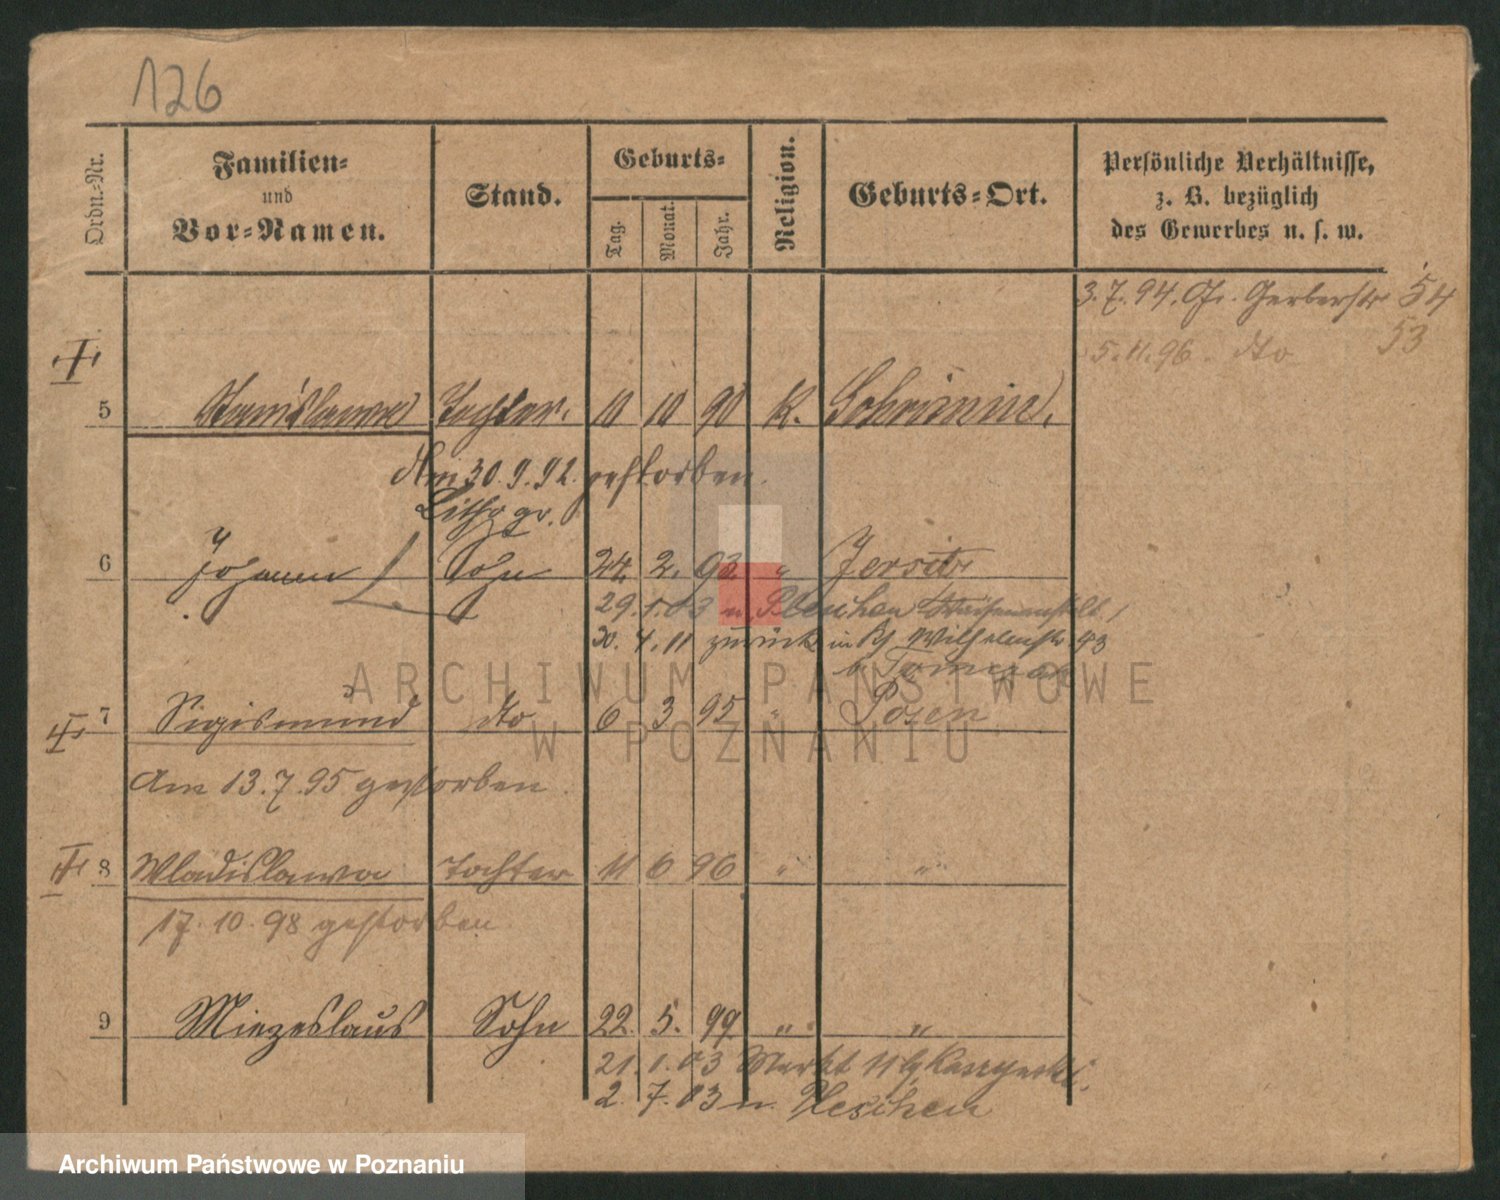 126
Ordn.-Nr.
Familien-
und
Vor-Namen.
Stand.
Geburts-
Tag.
Monat.
Jahr.
Religion.
Geburts-Ort.
Persönliche Verhältnisse,
z. B. bezüglich
des Gewerbes u. s. w.
3.7.94. Gr. Gerberstr 54
5.11.96. dto 53
5 Stanislawa Tochter. 10 10 90 K. Schrimm.
Am 30.9.92. gestorben.
6 Johann Sohn 24. 2. 93. " Jersitz
29.1.03 n. Pleschen
30.4.11 zurück in Wilhelmstr. 43
7 Sigismund dto 6 3 95 " Posen
Am 13.7.95 gestorben.
8 Wladislawa Tochter 11 6 96 " "
17.10.98 gestorben.
9 Miezeslaus Sohn 22. 5. 99. " "
21.1.03 Markt 11
2.7.03 n. Pleschen
ARCHIWUM PAŃSTWOWE
W POZNANIU
Archiwum Państwowe w Poznaniu